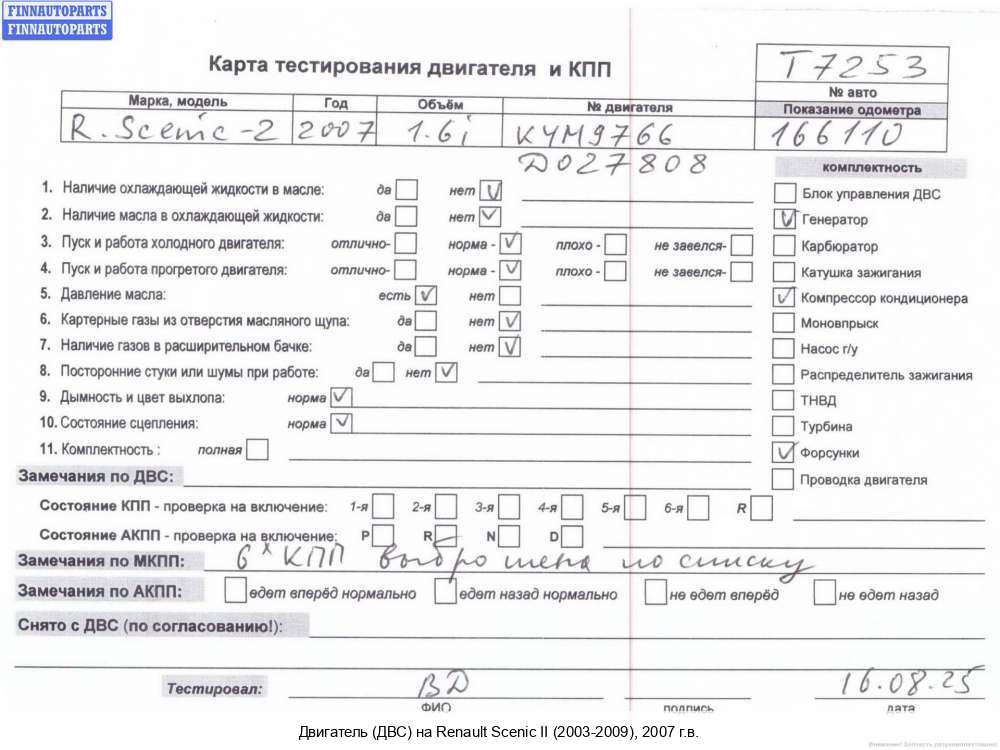 FINNAUTOPARTS
FINNAUTOPARTS
Карта тестирования двигателя и КПП
T7253
№ авто
Марка, модель Год Объём № двигателя Показание одометра
R. Scenic-2 2007 1.6i K4M9766 166110
D027808
комплектность
1. Наличие охлаждающей жидкости в масле: да нет
Блок управления ДВС
2. Наличие масла в охлаждающей жидкости: да нет
Генератор
3. Пуск и работа холодного двигателя: отлично- норма - плохо - не завелся-
Карбюратор
4. Пуск и работа прогретого двигателя: отлично- норма - плохо - не завелся-
Катушка зажигания
5. Давление масла: есть нет
Компрессор кондиционера
6. Картерные газы из отверстия масляного щупа: да нет
Моновпрыск
7. Наличие газов в расширительном бачке: да нет
Насос г/у
8. Посторонние стуки или шумы при работе: да нет
Распределитель зажигания
9. Дымность и цвет выхлопа: норма
ТНВД
10. Состояние сцепления: норма
Турбина
11. Комплектность : полная
Форсунки
Замечания по ДВС:
Проводка двигателя
Состояние КПП - проверка на включение: 1-я 2-я 3-я 4-я 5-я 6-я R
Состояние АКПП - проверка на включение: P R N D
Замечания по МКПП: 6х КПП выброшена по списку
Замечания по АКПП: едет вперёд нормально едет назад нормально не едет вперёд не едет назад
Снято с ДВС (по согласованию!):
Тестировал: ВД 16.08.25
ФИО подпись дата
Двигатель (ДВС) на Renault Scenic II (2003-2009), 2007 г.в.